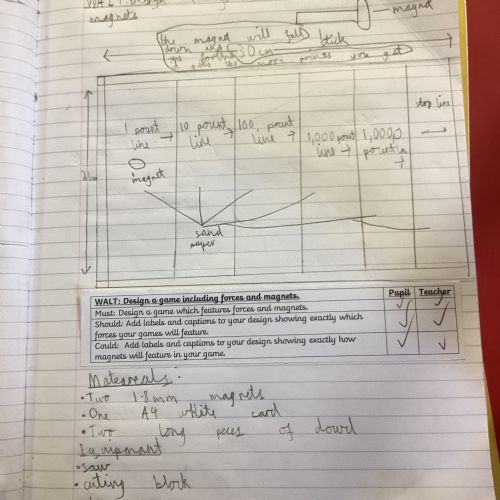 WALT: Design
magnets
magnet
the magnet will fall
down and stick
30cm
the more points you get
1 point line →
10 pount line →
100 pount line →
1,000 pount line →
1,0000 pount line →
stop line →
magnet
sand
paper
WALT: Design a game including forces and magnets. Pupil Teacher
Must: Design a game which features forces and magnets.
Should: Add labels and captions to your design showing exactly which
forces your games will feature.
Could: Add labels and captions to your design showing exactly how
magnets will feature in your game.
Matereals:
•Two 1.8mm magnets
•One A4 white card
•Two long peces of dowd
Equipmant
•saw
•cuting block